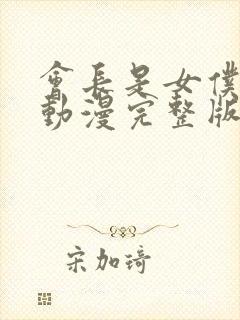 會長是女僕
動漫完整版
宋加琦